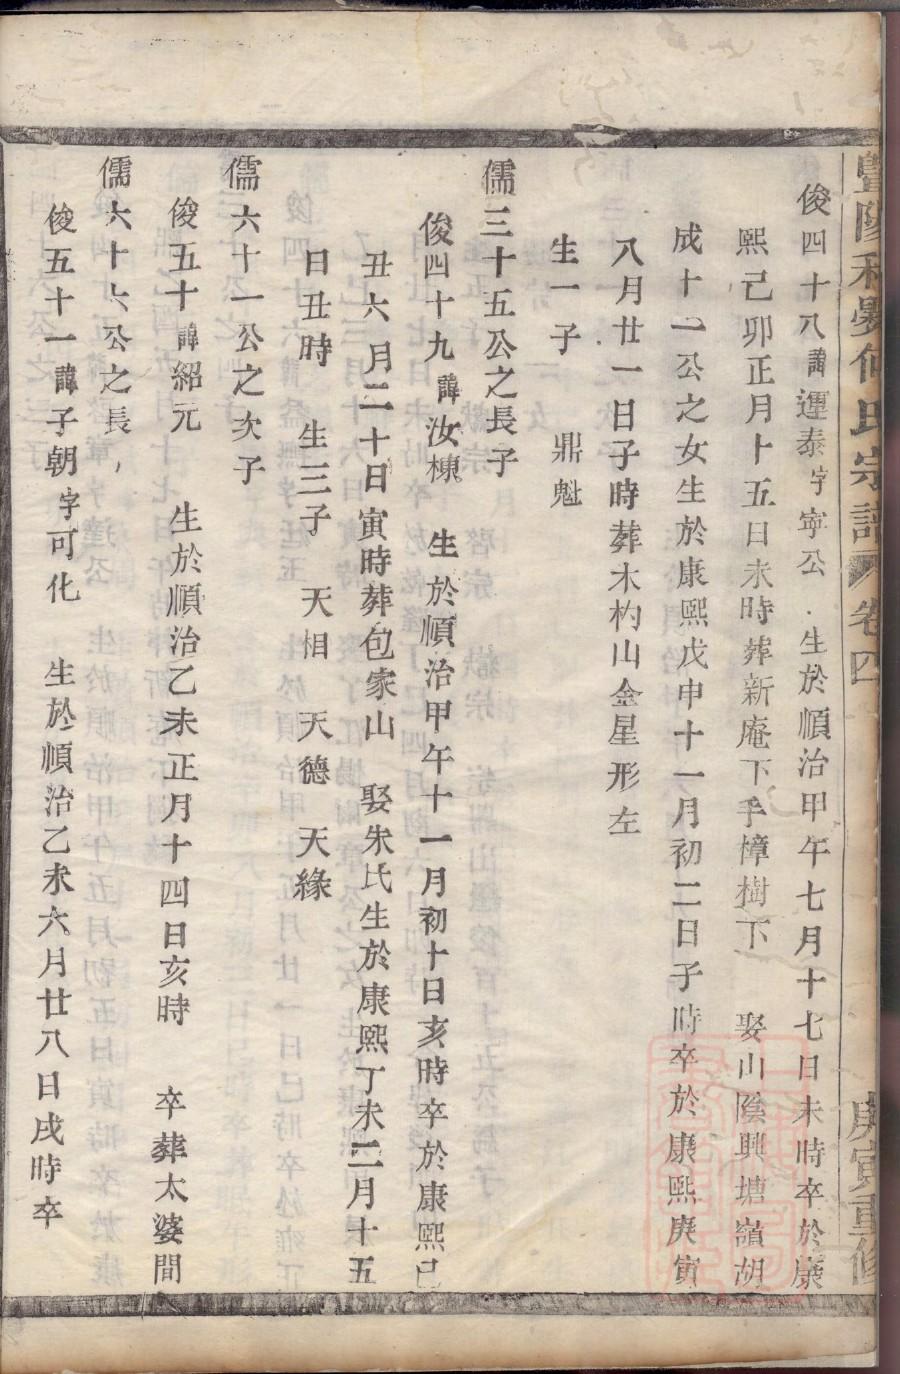 暨陽和晏何氏宗譜 卷四 庚寅重修
俊四十八諱運泰字寧公 生於順治甲午七月十七日未時卒於康
熙己卯正月十五日未時葬新庵下手樟樹下 娶山陰興塘嶺胡
成十一公之女生於康熙戊申十一月初二日子時卒於康熙庚寅
八月廿一日子時葬木杓山金星形左
生一子 鼎魁
儒三十五公之長子
俊四十九諱汝棟 生於順治甲午十一月初十日亥時卒於康熙己
丑六月二十日寅時葬包家山 娶朱氏生於康熙丁未二月十五
日丑時 生三子 天相 天德 天緣
儒六十一公之次子
俊五十諱紹元 生於順治乙未正月十四日亥時 卒葬太婆間
儒六十六公之長
俊五十一諱子朝字可化 生於順治乙未六月廿八日戌時卒